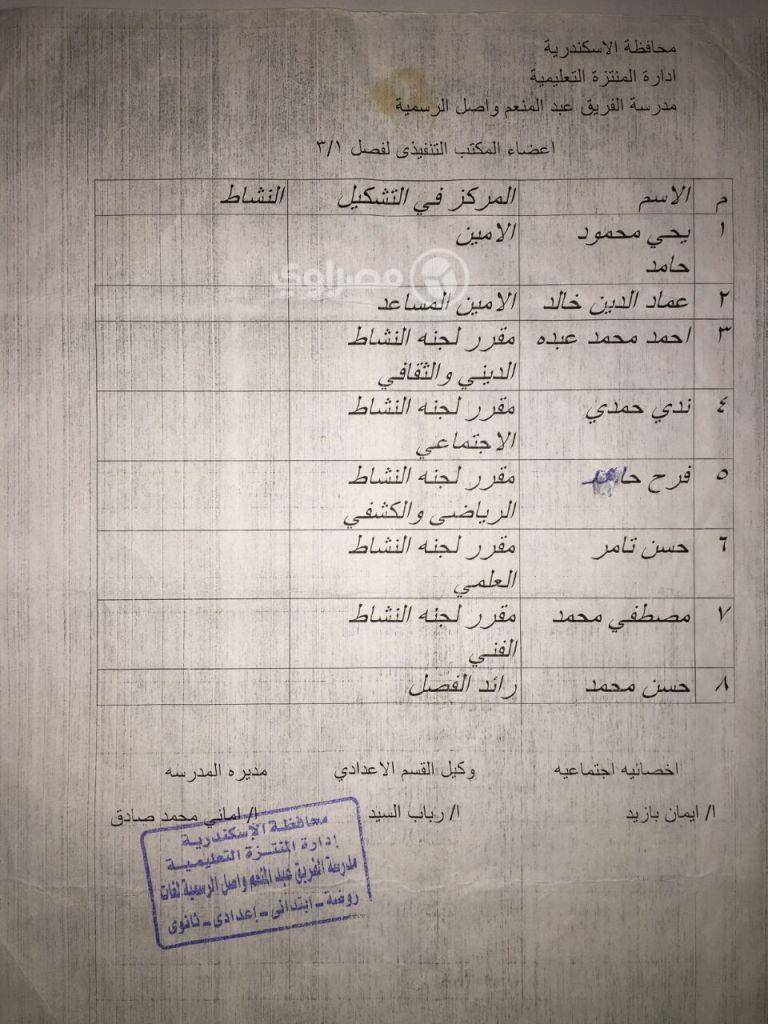 محافظة الاسكندرية
ادارة المنتزة التعليمية
مدرسة الفريق عبد المنعم واصل الرسمية
اعضاء المكتب التنفيذى لفصل ٣/١
م الاسم المركز في التشكيل النشاط
١ يحي محمود الامين
حامد
مصراوي
٢ عماد الدين خالد الامين المساعد
٣ احمد محمد عبده مقرر لجنه النشاط
الديني والثقافي
٤ ندي حمدي مقرر لجنه النشاط
الاجتماعي
٥ فرح حامد مقرر لجنه النشاط
الرياضى والكشفي
٦ حسن تامر مقرر لجنه النشاط
العلمي
٧ مصطفي محمد مقرر لجنه النشاط
الفني
٨ حسن محمد رائد الفصل
اخصائيه اجتماعيه وكيل القسم الاعدادي مديره المدرسه
ا/ ايمان بازيد ا/ رباب السيد ا/ اماني محمد صادق
محافظة الإسكندرية
إدارة المنتزة التعليمية
مدرسة الفريق عبد المنعم واصل الرسمية لغات
روضة - ابتدائى - إعدادى - ثانوى